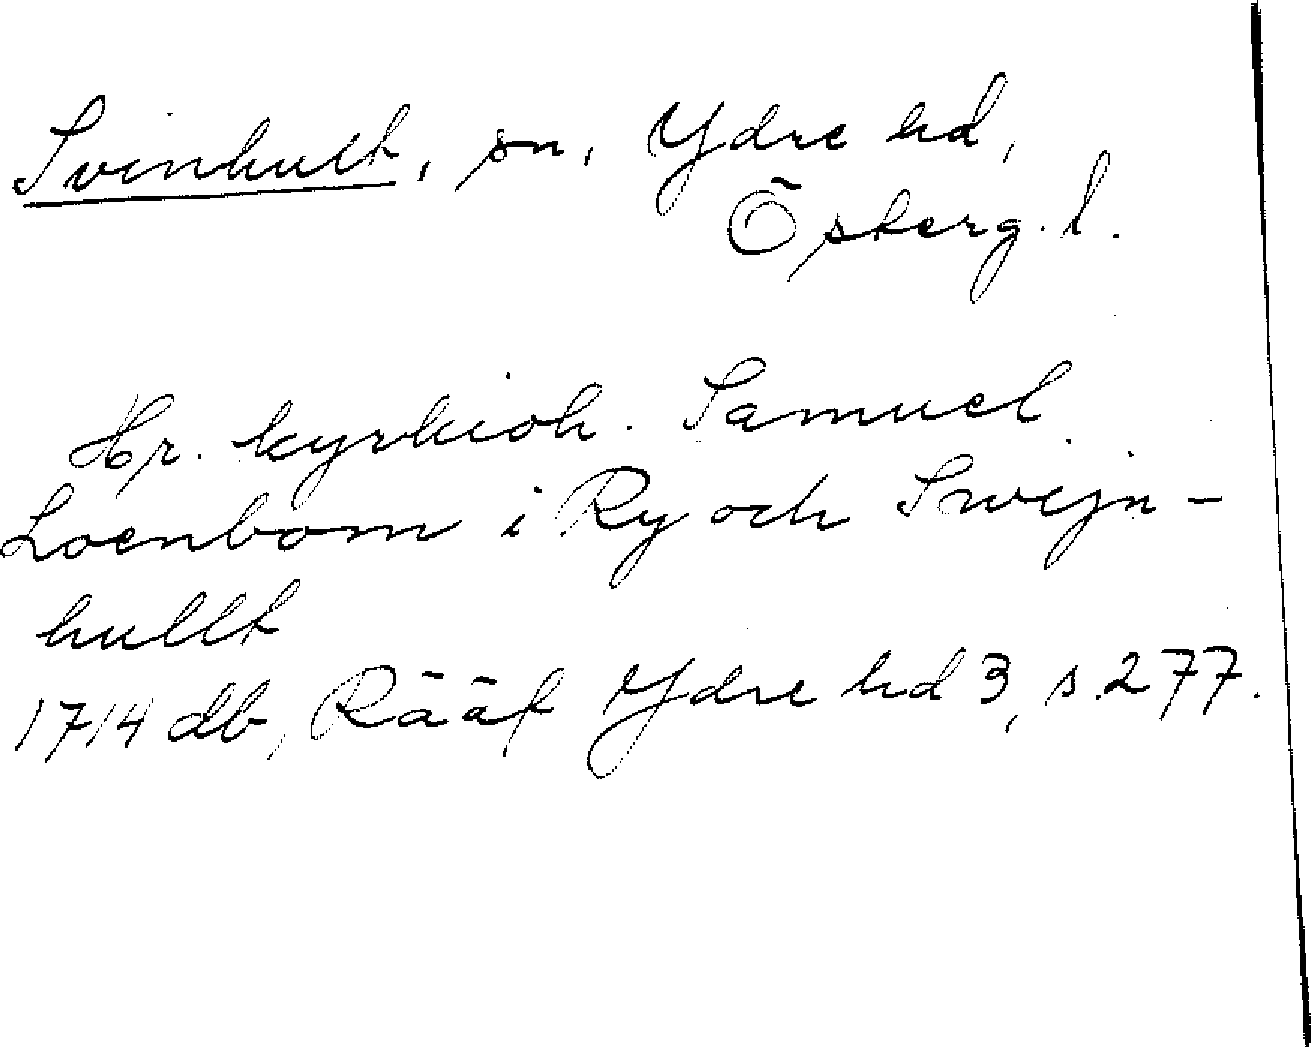 Svinhult, sn, Ydre hd,
Österg. l.
Hr. kyrkioh. Samuel
Loenbom i Ry och Swejn-
hullt
1714 db, Rääf Ydre hd 3, s. 277.